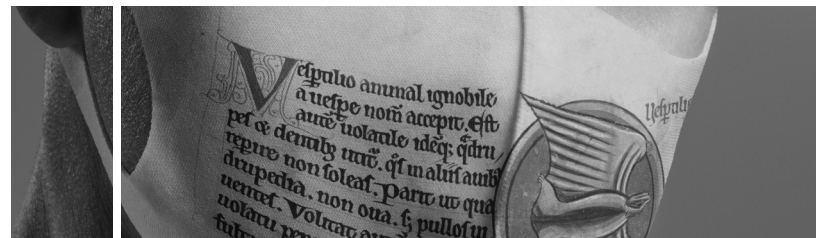 Vespertilio animal ignobile
a uespe nom̃ accepit. Est
autẽ uolatile idẽq; q̃dru
pes & dentib; utit̃. q̃d in aliis auib;
repire non soleas. Parit ut qua
drupedia. non oua. s; pullos ui
uentes. Volitat aut
uolatu
Vesptilio